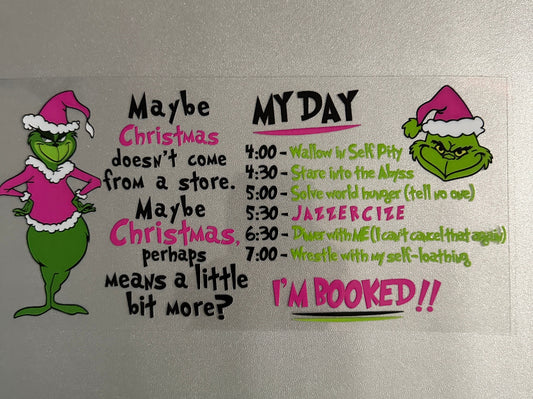 Maybe
Christmas
doesn't come
from a store.
Maybe
Christmas,
perhaps
means a little
bit more?
MY DAY
4:00 - Wallow in Self Pity
4:30 - Stare into the Abyss
5:00 - Solve world hunger (tell no one)
5:30 - JAZZERCIZE
6:30 - Dinner with ME (I can't cancel that again)
7:00 - Wrestle with my self-loathing
I'M BOOKED!!